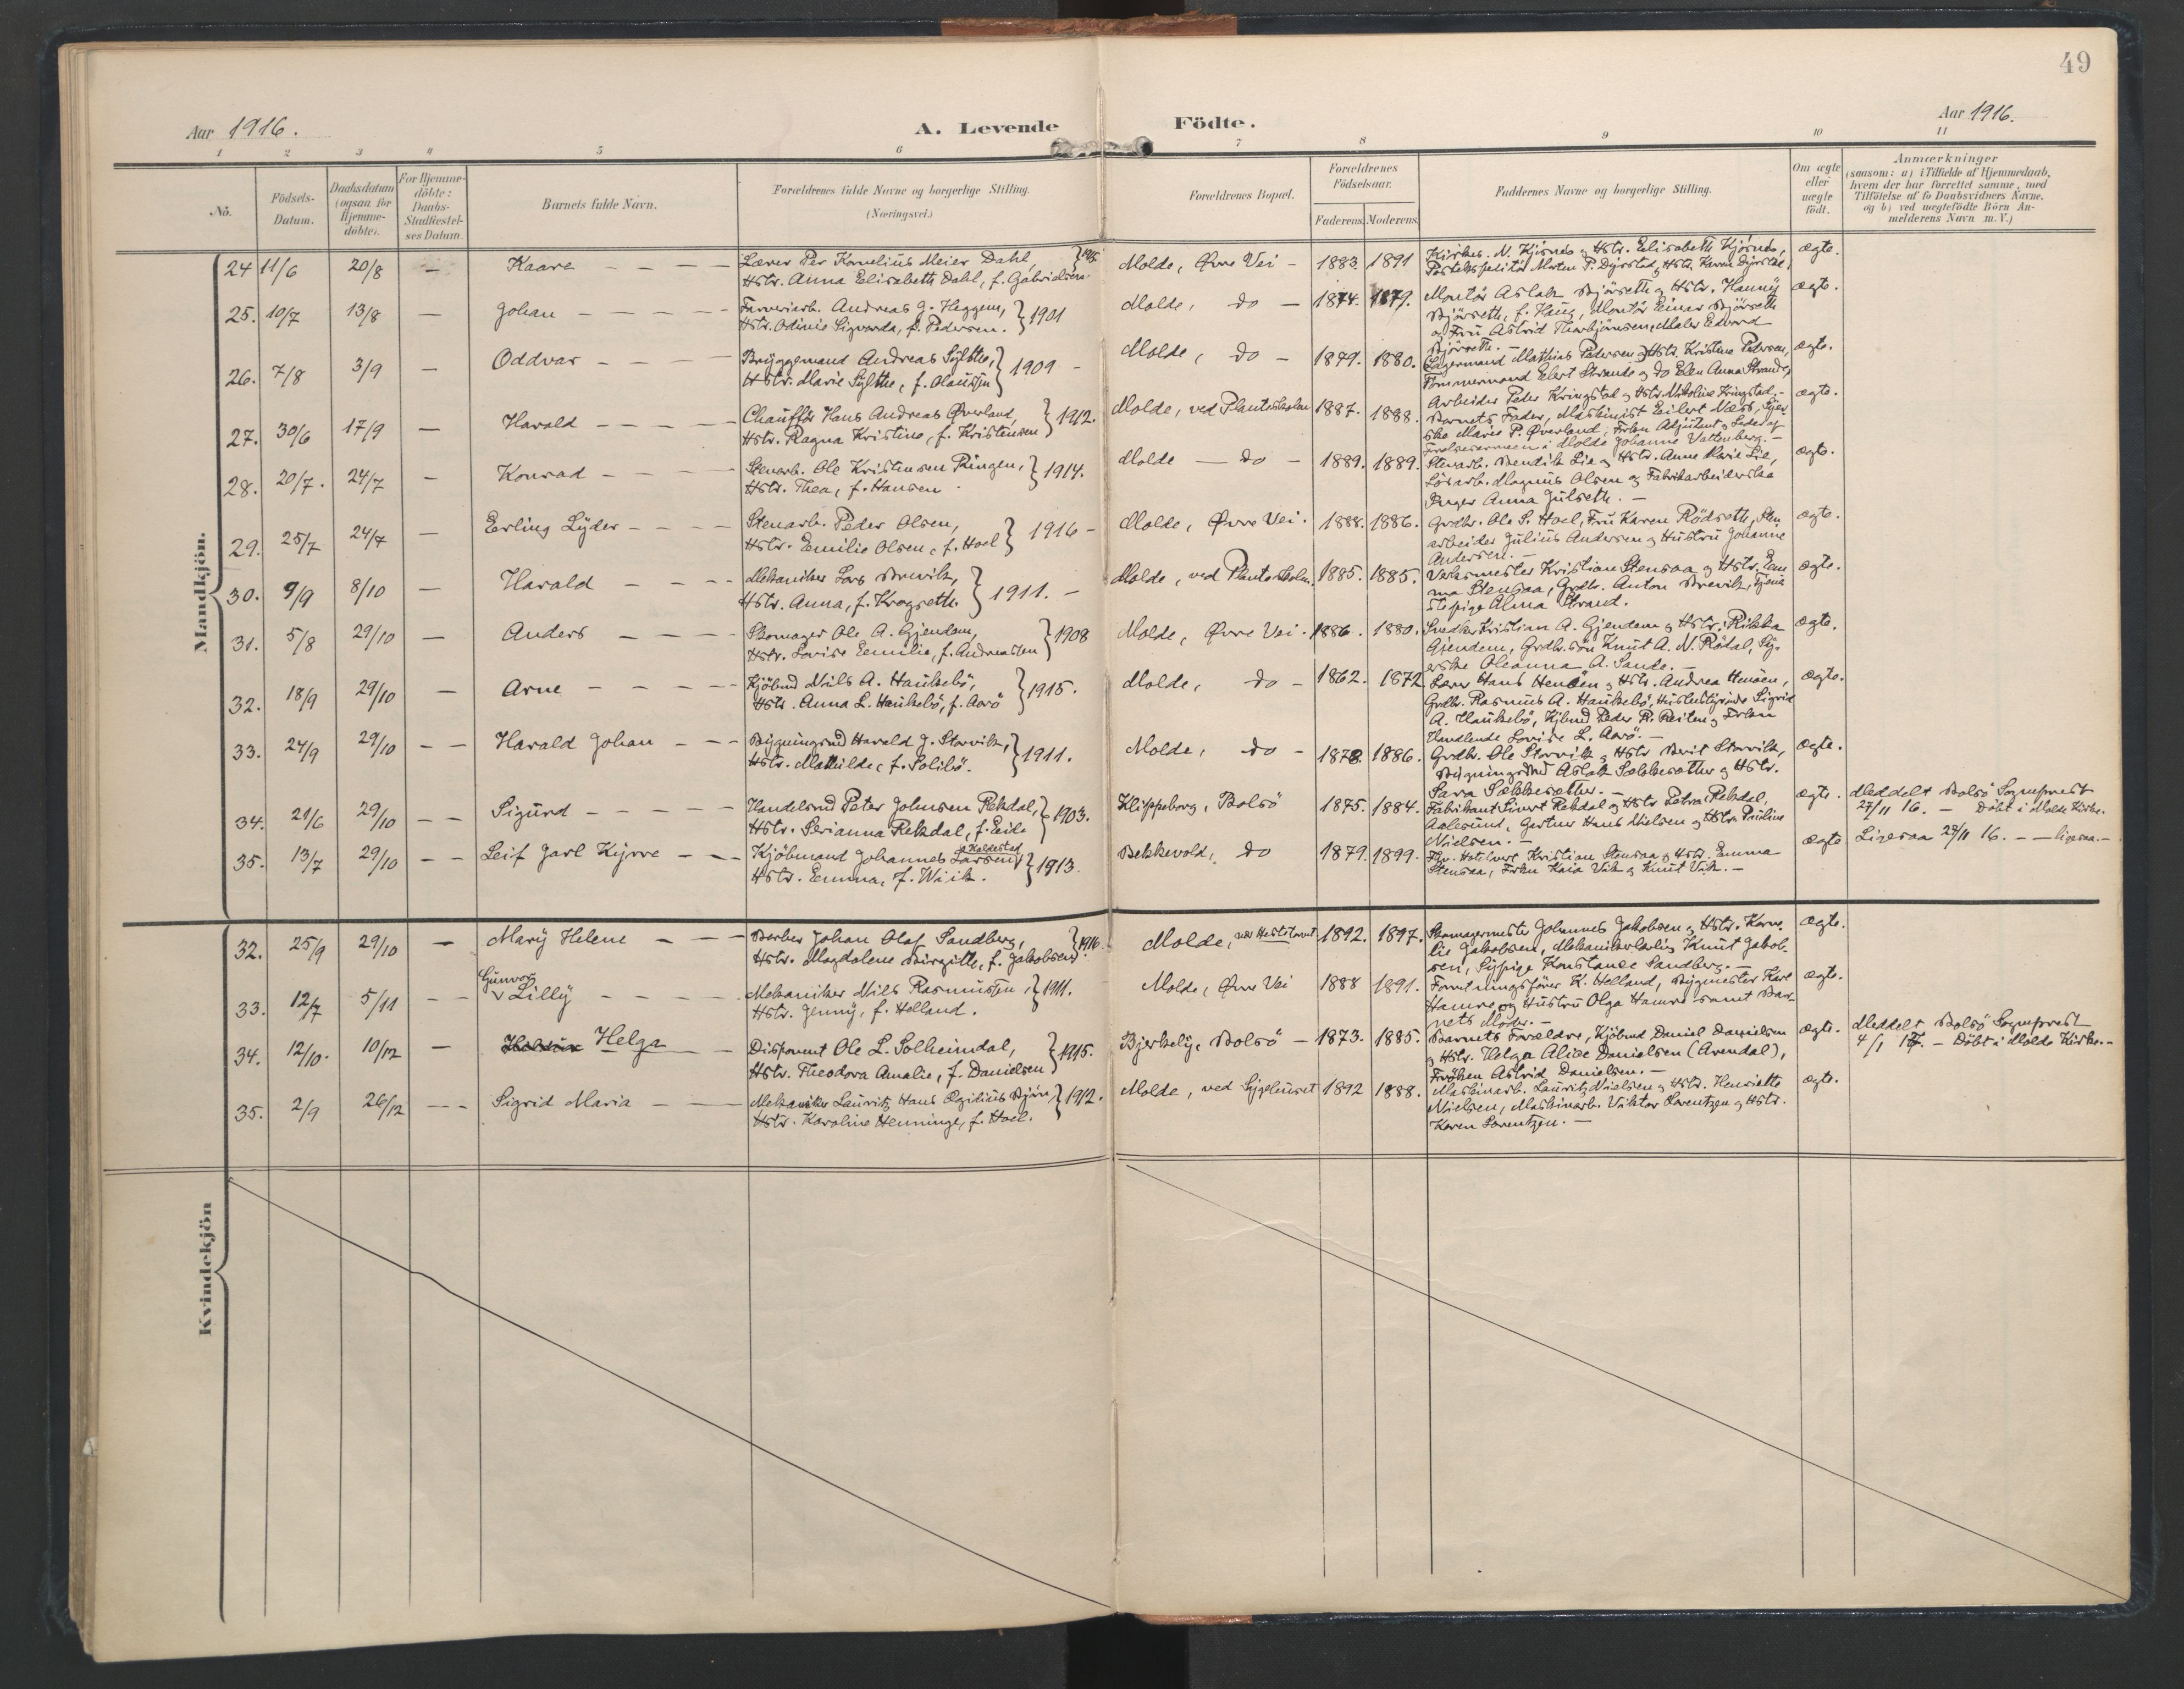 49
Aar 1916.
A. Levende Födte.
Aar 1916.
1 2 3 4 5 6 7 8 9 10 11
No.
Födsels-
Datum.
Daabsdatum
(ogsaa for
Hjemme-
döbte).
For Hjemme-
döbte:
Daabs-
Stadfæstel-
ses Datum.
Barnets fulde Navn.
Forældrenes fulde Navne og borgerlige Stilling.
(Næringsvei.)
Forældrenes Bopæl.
Forældrenes
Födselsaar.
Faderens. Moderens.
Faddernes Navne og borgerlige Stilling.
Om ægte
eller
uægte
födt.
Anmærkninger
(saasom: a) i Tilfælde af Hjemmedaab,
hvem der har forrettet samme, med
Tilföielse af to Daabsvidners Navne,
og b) ved uægtefödte Börn An-
melderens Navn m. V.)
Mandkjön.
24 11/6 20/8 — Kaare — — —
Lærer Per Kornelius Meier Dahl,
Hstr. Anna Elisabeth Dahl, f. Gabrielsen
Molde, Øvre Vei — 1883. 1891
Kirkes. N. Kjörnes og Hstr. Elisabeth Kjörnes,
Postekspeditör Morten P. Dyrstad, Hstr. Karen Dyrstad,
ægte.
25. 10/7 13/8 — Johan — — — —
Farveriarb. Andreas J. Heggem,
Hstr. Odinie Sigvarda, f. Pedersen. } 1901
Molde, do — 1874. 1879.
Montör Aslak Björseth og Hstr. Hanny
Björseth, f. Haug, Montör Einar Björseth
og Fru Astrid Thorbjörnsen, Maler Edvard
Björseth. —
ægte.
26. 7/8 3/9 — Oddvar — — —
Bryggemand Andreas Sylthe,
Hstr. Marie Sylthe, f. Olausen } 1909 —
Molde, do — 1879. 1880.
Lagermand Mathias Pedersen og Hstr. Kristine Pedersen,
Tömmermand Elert Strande og do Elen Anna Strande,
ægte.
27. 30/6 17/9 — Harald — — — —
Chaufför Hans Andreas Øverland,
Hstr. Ragna Kristine, f. Kristensen } 1912.
Molde, ved Planteskolen 1887. 1888.
Arbeider Peder Kringstad og Hstr. Nikoline Kringstad. —
Barnets Fader, Maskinist Eilert Næss, Syer-
ske Marie P. Øverland, Frkn Adjutant og Leder af
Frelsesarmeen i Molde Johanne Vattenberg. —
ægte.
28. 20/7. 24/7 — Konrad — — — —
Stenarb. Ole Kristensen Ringen,
Hstr. Thea, f. Hansen } 1914.
Molde — do — 1889. 1889.
Stenarb. Bendik Lie og Hstr. Anne Marie Lie,
Lösarb. Magnus Olsen og Fabrikarbeiderske
Inger Anna Julseth. —
ægte.
29. 25/7 24/7 — Erling Lyder — — — —
Stenarb. Peder Olsen,
Hstr. Emilie Olsen, f. Hoel } 1916 —
Molde, Øvre Vei. 1888. 1886.
Grdbr. Ole S. Hoel, Fru Karen Rödseth, Sten-
arbeider Julius Andersen og Hustru Johanne
Andersen. —
ægte.
30. 9/9 8/10 — Harald — — — —
Mekaniker Lars Brevik,
Hstr. Anna, f. Krogseth. } 1911. —
Molde, ved Planteskolen, 1885. 1885.
Verksmester Kristian Stensaa og Hstr. Em-
ma Stensaa, Grdbr. Anton Brevik, Tjene-
stepige Alma Strand.
ægte.
31. 5/8 29/10 — Anders — — — —
Skomager Ole A. Gjendem,
Hstr. Lovise Emilie, f. Andreassen } 1908
Molde, Øvre Vei. 1886. 1880.
Snedker Kristian A. Gjendem og Hstr. Rikka
Gjendem, Grdbr.sön Knut A. N. Rödal, Sy-
erske Oleanna A. Sande. —
ægte.
32. 18/9 29/10 — Arne — — — —
Kjöbmd Nils A. Haukebö,
Hstr. Anna L. Haukebö, f. Aarö } 1915.
Molde, do — 1862. 1872.
Lærer Hans Henöen og Hstr. Andrea Henöen,
Grdbr. Rasmus A. Haukebö, Husbestyrerinde Sigrid
A. Haukebö, Kjbmd Peder R. Reiten og Frkn
Handlende Lovise L. Aarö. —
ægte.
33. 24/9 29/10 — — Harald Johan — — —
Bygningsmd Harald J. Storvik,
Hstr. Mathilde, f. Solibö. } 1911.
Molde, do — 1878. 1886.
Grdbr. Ole Storvik og Hstr. Berit Storvik,
Bygningsmd Aslak Sækkesæther og Hstr.
Sara Sækkesæther. —
ægte.
34. 21/6 29/10 — — Sigurd — — — —
Handelsmd Peter Johnsen Rekdal,
Hstr. Serianna Rekdal, f. Eide } 1903.
Klippeborg, Bolsö 1875. 1884.
Fabrikant Sivert Rekdal og Hstr. Petra Rekdal,
Aalesund, Gartner Hans Nielsen og Hstr. Pauline
Nielsen. —
ægte.
Meddelt Bolsö Sogneprest
27/11 16. — Döbt i Molde Kirke.
35. 13/7 29/10 — — Leif Jarl Kyrre — — —
Kjöbmand Johannes Larsen Kaldestad
Hstr. Emma, f. Wiik. } 1913.
Bekkevold, do 1879. 1899.
Fhv. Hotelvert Kristian Stensaa og Hstr. Emma
Stensaa, Frkn Kaia Vik og Knut Vik. —
ægte
Ligesaa 27/11 16. — — ligesaa. —
Kvindekjön
32. 25/9 29/10 — Mary Helene — — —
Barber Johan Olaf Sandberg,
Hstr. Magdalene Birgitte, f. Jakobsen } 1916.
Molde, 1892. 1897.
Skomagermester Johannes Jakobsen og Hstr. Karo-
lie Jakobsen, Mekanikerlærling Knut Jakob-
sen, Sypige Konstance Sandberg. —
ægte.
33. 12/7 5/11 — — Gunvor Lilly — — — —
Mekaniker Nils Rasmussen,
Hstr. Jenny, f. Helland. } 1911.
Molde, Øvre Vei 1888 1891.
Forretningsförer K. Helland, Bygmester Karl
Hamre og Hustru Olga Hamre samt Bar-
nets Moder. —
ægte.
34. 12/10. 10/12 — Helga — —
Disponent Ole L. Solheimdal,
Hstr. Theodora Amalie, f. Danielsen } 1915.
Bjerkely, Bolsö — 1873. 1885.
Barnets Forældre, Kjöbmd Daniel Danielsen
og Hstr. Helga Alice Danielsen (Arendal),
Fröken Astrid Danielsen. —
ægte.
Meddelt Bolsö Sogneprest
4/1 17. — Döbt i Molde Kirke. —
35. 2/9 26/12 — — Sigrid Maria — — —
Mekaniker Lauritz Hans Egilius Björn
Hstr. Karoline Henninge, f. Hoel. } 1912.
Molde, ved Sygehuset 1892 1888.
Maskinarb. Lauritz Nielsen og Hstr. Henriette
Nielsen, Maskinarb. Viktor Lorentzen og Hstr.
Karen Lorentzen. —
ægte.